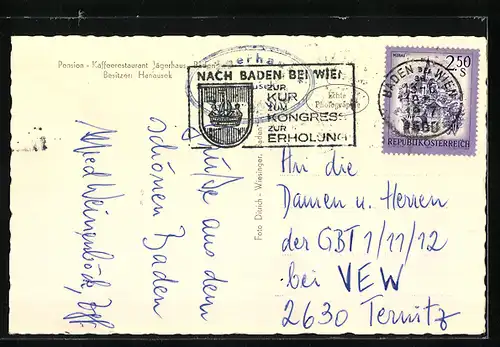 Pension - Kaffeerestaurant Jägerhaus - Baden
Besitzer: Hanausek
Grüße aus dem
schönen Baden
Foto Dietrich - Wiesinger, Baden
NACH BADEN BEI WIEN
ZUR
KUR
ZUM
KONGRESS
ZUR
ERHOLUNG
Echte
Photographie
BADEN B. WIEN
2500
2.50
S
REPUBLIK ÖSTERREICH
An die
Damen u. Herren
der GBT 1/11/12
bei VEW
2630 Ternitz